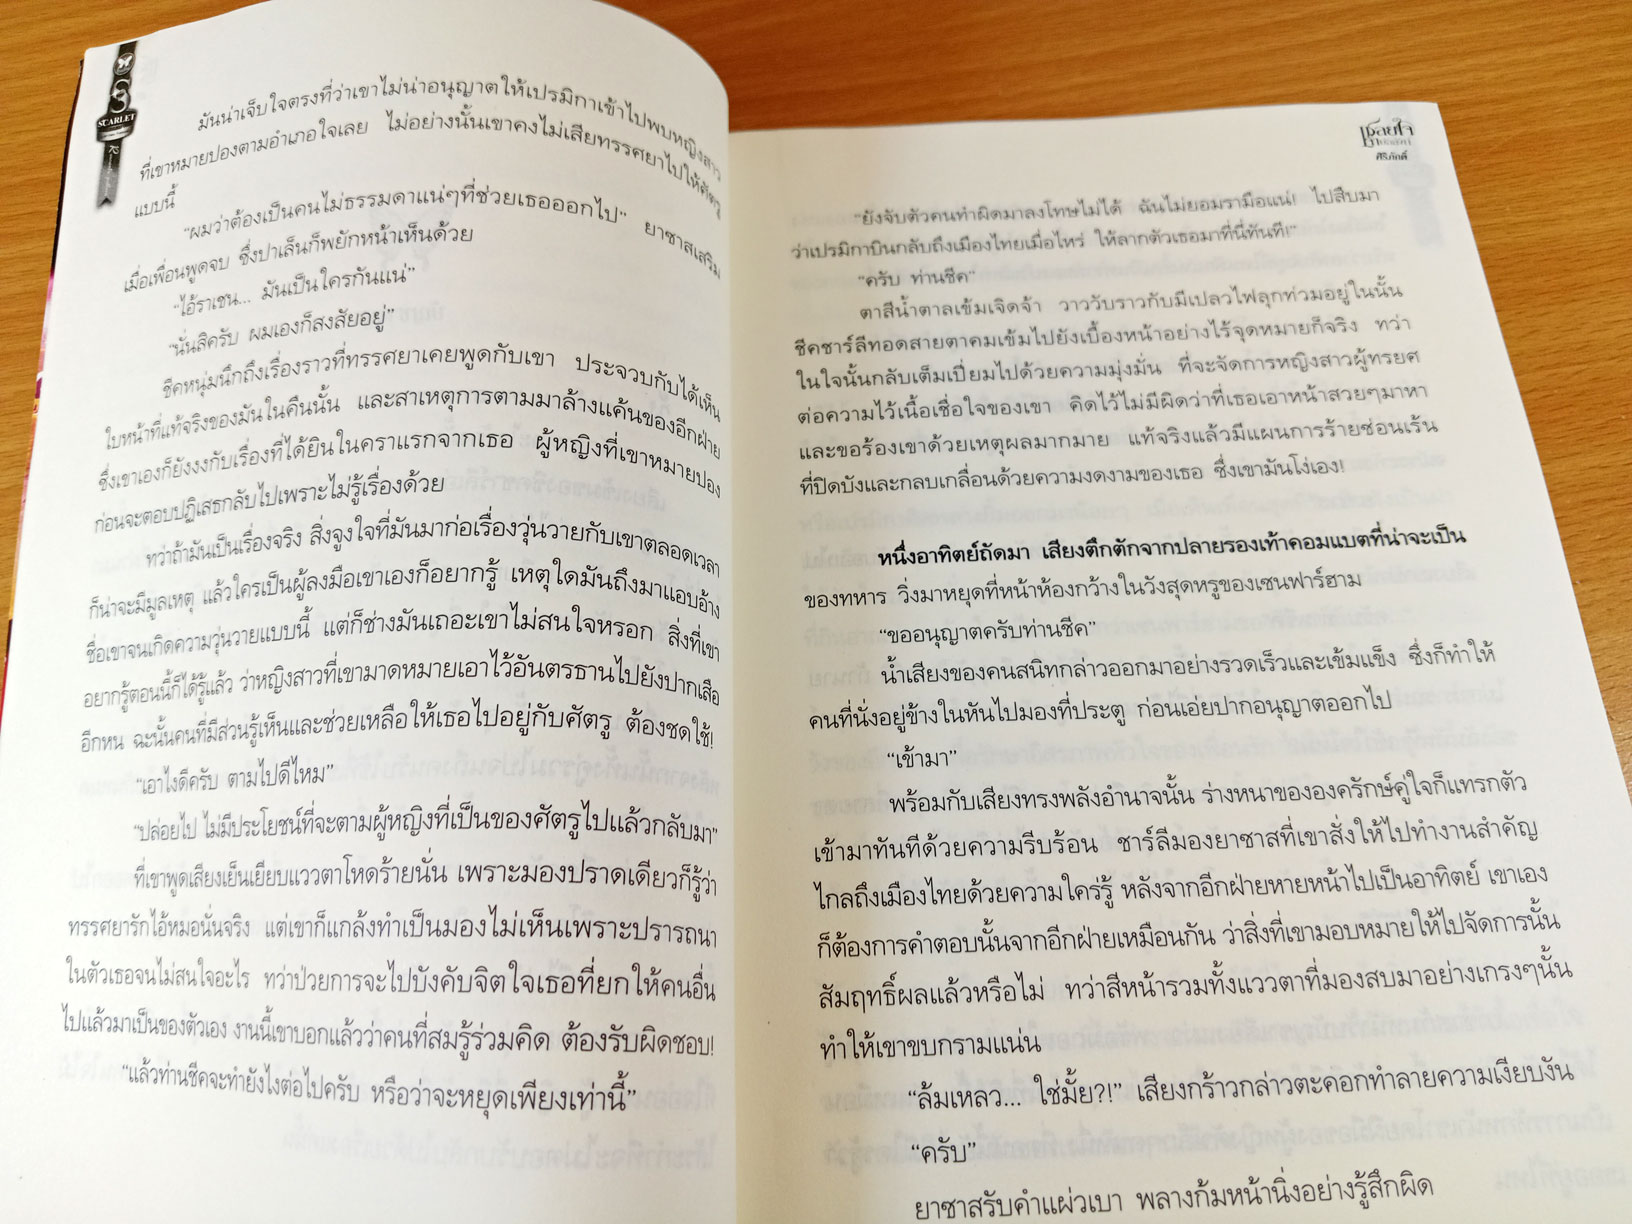 SCARLET
มันน่าเจ็บใจตรงที่ว่าเขาไม่น่าอนุญาตให้เปรมิกาเข้าไปพบหญิงสาว
ที่เขาหมายปองตามอำเภอใจเลย ไม่อย่างนั้นเขาคงไม่เสียทรรศยาไปให้ศัตรู
แบบนี้
“ผมว่าต้องเป็นคนไม่ธรรมดาแน่ๆที่ช่วยเธอออกไป” ยาซาสเสริม
เมื่อเพื่อนพูดจบ ซึ่งปาเล็นก็พยักหน้าเห็นด้วย
“ไอ้ราเชน... มันเป็นใครกันแน่”
“นั่นสิครับ ผมเองก็สงสัยอยู่”
ชีคหนุ่มนึกถึงเรื่องราวที่ทรรศยาเคยพูดกับเขา ประจวบกับได้เห็น
ใบหน้าที่แท้จริงของมันในคืนนั้น และสาเหตุการตามมาล้างแค้นของอีกฝ่าย
ซึ่งเขาเองก็ยังงงกับเรื่องที่ได้ยินในคราแรกจากเธอ ผู้หญิงที่เขาหมายปอง
ก่อนจะตอบปฏิเสธกลับไปเพราะไม่รู้เรื่องด้วย
ทว่าถ้ามันเป็นเรื่องจริง สิ่งจูงใจที่มันมาก่อเรื่องวุ่นวายกับเขาตลอดเวลา
ก็น่าจะมีมูลเหตุ แล้วใครเป็นผู้ลงมือเขาเองก็อยากรู้ เหตุใดมันถึงมาแอบอ้าง
ชื่อเขาจนเกิดความวุ่นวายแบบนี้ แต่ก็ช่างมันเถอะเขาไม่สนใจหรอก สิ่งที่เขา
อยากรู้ตอนนี้ก็ได้รู้แล้ว ว่าหญิงสาวที่เขามาดหมายเอาไว้อันตรธานไปยังปากเสือ
อีกหน ฉะนั้นคนที่มีส่วนรู้เห็นและช่วยเหลือให้เธอไปอยู่กับศัตรู ต้องชดใช้!
“เอาไงดีครับ ตามไปดีไหม”
“ปล่อยไป ไม่มีประโยชน์ที่จะตามผู้หญิงที่เป็นของศัตรูไปแล้วกลับมา”
ที่เขาพูดเสียงเย็นเยียบแววตาโหดร้ายนั่น เพราะมองปราดเดียวก็รู้ว่า
ทรรศยารักไอ้หมอนั่นจริง แต่เขาก็แกล้งทำเป็นมองไม่เห็นเพราะปรารถนา
ในตัวเธอจนไม่สนใจอะไร ทว่าป่วยการจะไปบังคับจิตใจเธอที่ยกให้คนอื่น
ไปแล้วมาเป็นของตัวเอง งานนี้เขาบอกแล้วว่าคนที่สมรู้ร่วมคิด ต้องรับผิดชอบ!
“แล้วท่านชีคจะทำยังไงต่อไปครับ หรือว่าจะหยุดเพียงเท่านี้”
ศิริภักดิ์
“ยังจับตัวคนทำผิดมาลงโทษไม่ได้ ฉันไม่ยอมรามือแน่! ไปสืบมา
ว่าเปรมิกาบินกลับถึงเมืองไทยเมื่อไหร่ ให้ลากตัวเธอมาที่นี่ทันที!”
“ครับ ท่านชีค”
ตาสีน้ำตาลเข้มเจิดจ้า วาววับราวกับมีเปลวไฟลุกท่วมอยู่ในนั้น
ชีคชาร์ลีทอดสายตาคมเข้มไปยังเบื้องหน้าอย่างไร้จุดหมายก็จริง ทว่า
ในใจนั้นกลับเต็มเปี่ยมไปด้วยความมุ่งมั่น ที่จะจัดการหญิงสาวผู้ทรยศ
ต่อความไว้เนื้อเชื่อใจของเขา คิดไว้ไม่มีผิดว่าที่เธอเอาหน้าสวยๆมาหา
และขอร้องเขาด้วยเหตุผลมากมาย แท้จริงแล้วมีแผนการร้ายซ่อนเร้น
ที่ปิดบังและกลบเกลื่อนด้วยความงดงามของเธอ ซึ่งเขามันโง่เอง!
หนึ่งอาทิตย์ถัดมา เสียงตึกตักจากปลายรองเท้าคอมแบตที่น่าจะเป็น
ของทหาร วิ่งมาหยุดที่หน้าห้องกว้างในวังสุดหรูของเซนฟาร์ฮาม
“ขออนุญาตครับท่านชีค”
น้ำเสียงของคนสนิทกล่าวออกมาอย่างรวดเร็วและเข้มแข็ง ซึ่งก็ทำให้
คนที่นั่งอยู่ข้างในหันไปมองที่ประตู ก่อนเอ่ยปากอนุญาตออกไป
“เข้ามา”
พร้อมกับเสียงทรงพลังอำนาจนั้น ร่างหนาขององครักษ์คู่ใจก็แทรกตัว
เข้ามาทันทีด้วยความรีบร้อน ชาร์ลีมองยาซาสที่เขาสั่งให้ไปทำงานสำคัญ
ไกลถึงเมืองไทยด้วยความใคร่รู้ หลังจากอีกฝ่ายหายหน้าไปเป็นอาทิตย์ เขาเอง
ก็ต้องการคำตอบนั้นจากอีกฝ่ายเหมือนกัน ว่าสิ่งที่เขามอบหมายให้ไปจัดการนั้น
สัมฤทธิ์ผลแล้วหรือไม่ ทว่าสีหน้ารวมทั้งแววตาที่มองสบมาอย่างเกรงๆนั้น
ทำให้เขาขบกรามแน่น
“ล้มเหลว... ใช่มั้ย?!” เสียงกร้าวกล่าวตะคอกทำลายความเงียบงัน
“ครับ”
ยาซาสรับคำแผ่วเบา พลางก้มหน้านิ่งอย่างรู้สึกผิด